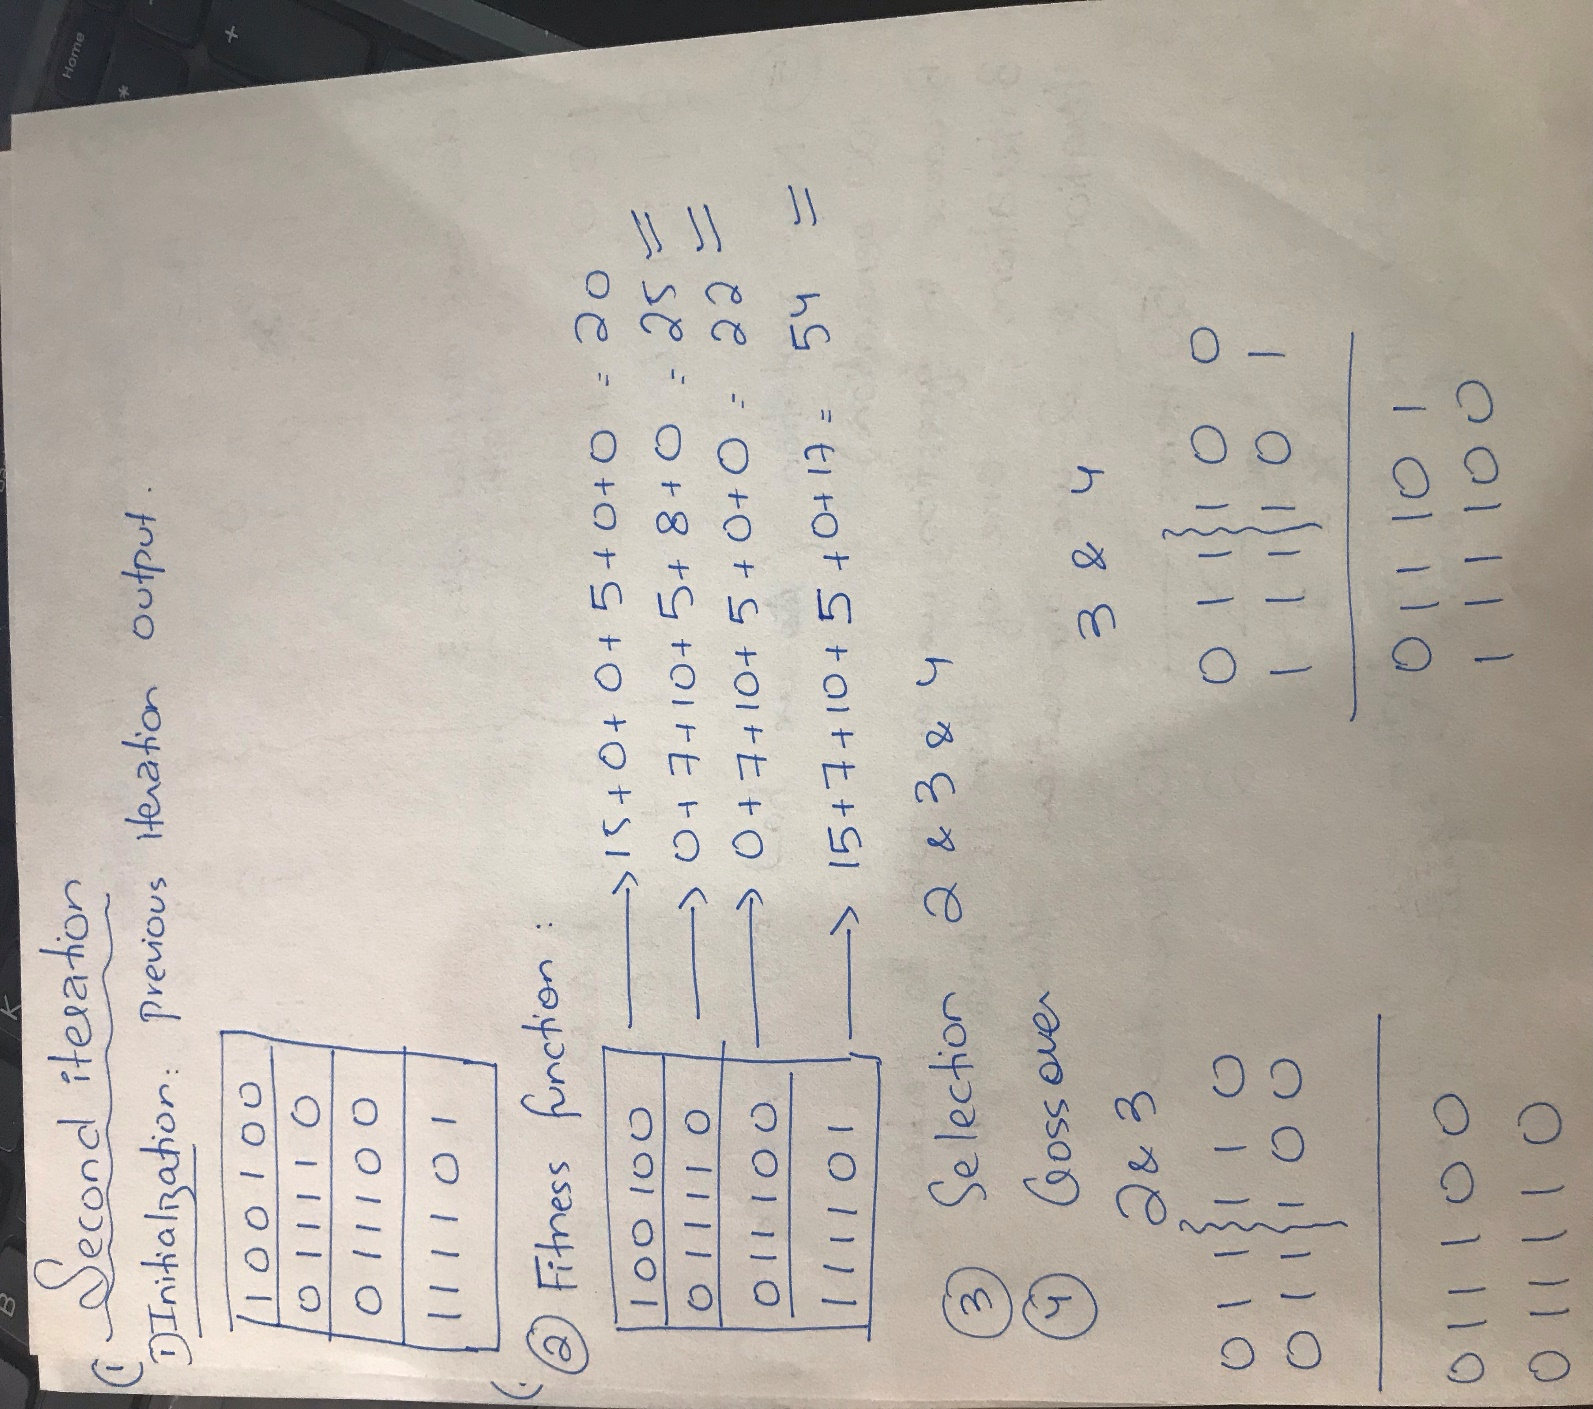 Second iteration
1) Initialization: previous iteration output.
100100
011110
011100
111101
② Fitness function:
100100 → 15+0+0+5+0+0 = 20
011110 → 0+7+10+5+8+0 = 25 =
011100 → 0+7+10+5+0+0 = 22 =
111101 → 15+7+10+5+0+17 = 54 =
③ Selection 2 & 3 & 4
④ Crossover
2 & 3
011}110
011}100
011100
011110
3 & 4
011}100
111}101
011101
111100
Home
+
*
K
B